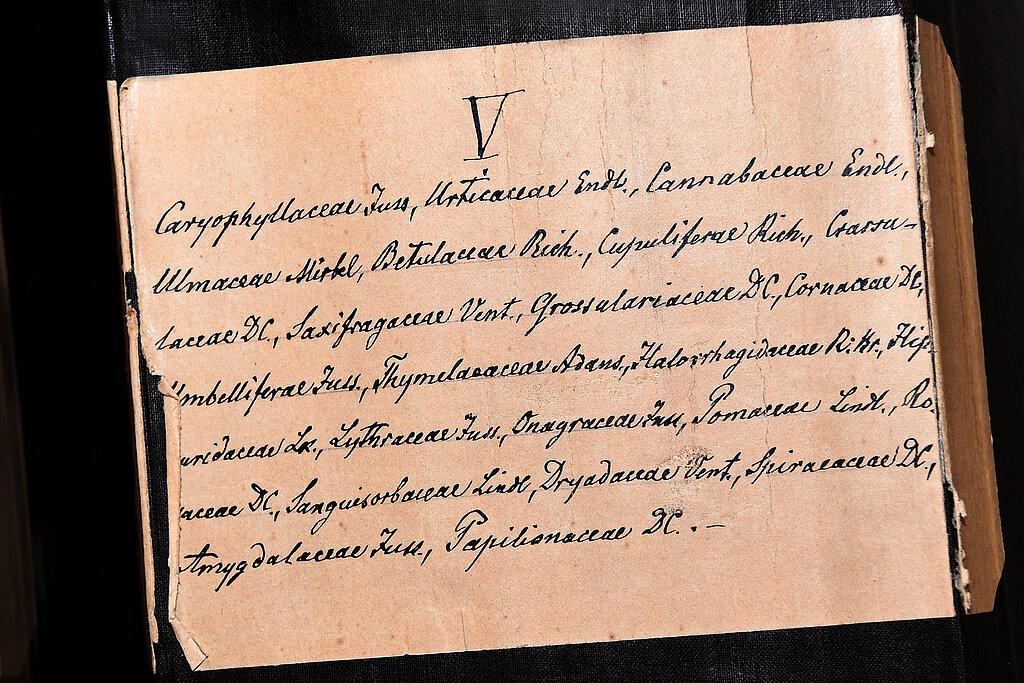 V
Caryophyllaceae Juss, Urticaceae Endl., Cannabaceae Endl.,
Ulmaceae Mirbl, Betulaceae Rich., Cupuliferae Rich., Crassu-
laceae DC., Saxifragaceae Vent., Grossulariaceae DC., Cornaceae DC,
Umbelliferae Juss., Thymelaeaceae Adans., Halorrhagidaceae R. Br., Hip-
uridaceae Lk., Lythraceae Juss, Onagraceae Juss, Pomaceae Lindl., Ro-
aceae DC., Sanguisorbaceae Lindl, Dryadaceae Vent., Spiraeaceae DC.,
Amygdalaceae Juss., Papilionaceae DC. . –